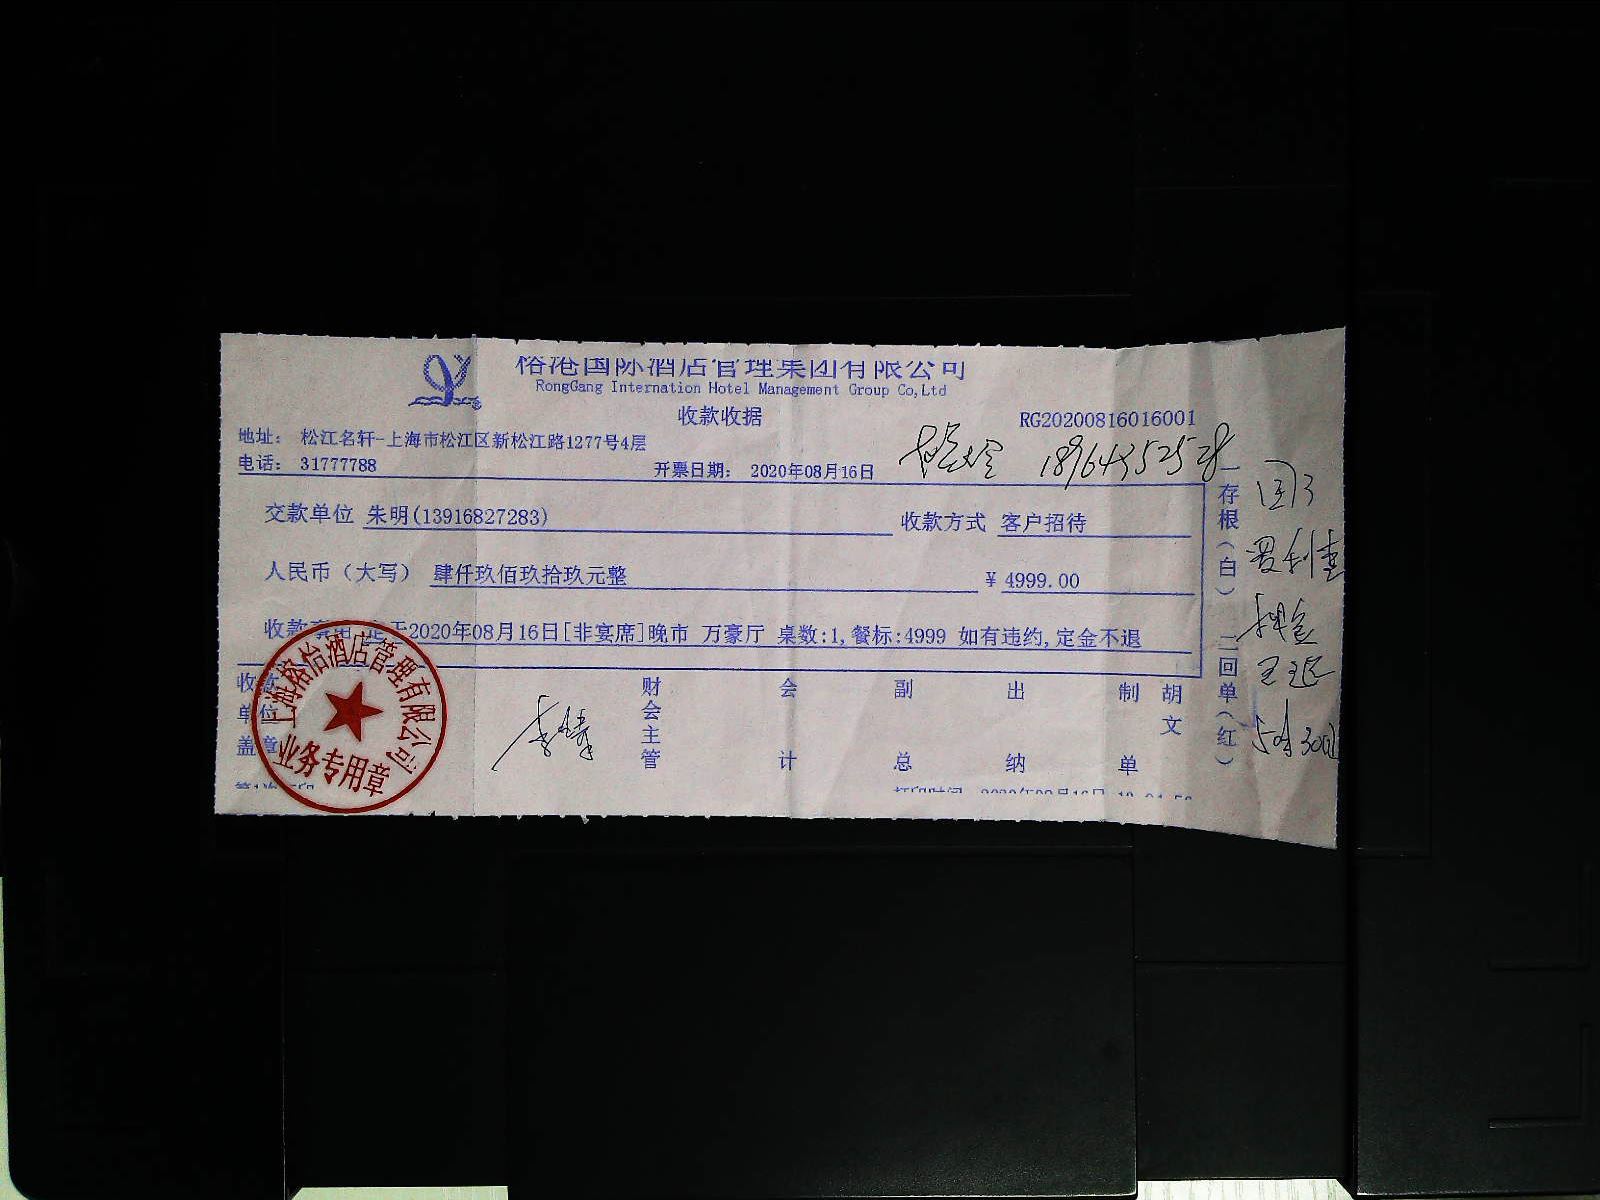 榕港国际酒店管理集团有限公司
RongGang Internation Hotel Management Group Co,Ltd
收款收据
RG20200816016001
地址： 松江名轩-上海市松江区新松江路1277号4层
电话： 31777788
开票日期： 2020年08月16日
交款单位 朱明(13916827283)
收款方式 客户招待
人民币（大写） 肆仟玖佰玖拾玖元整
¥ 4999.00
收款 2020年08月16日[非宴席]晚市 万豪厅 桌数:1,餐标:4999 如有违约,定金不退
收款单位盖章
财会主管
会计
副总
出纳
制单
胡文
一存根（白）二回单（红）
上海榕怡酒店管理有限公司
业务专用章